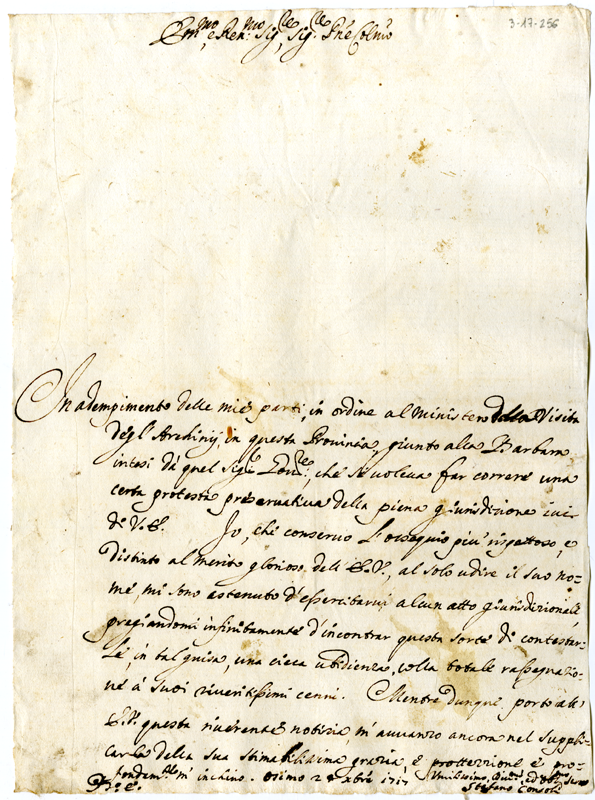 3-17-256
Em.mo e Rev.mo Sig.re Sig.re P.ne Col.mo
In adempimento delle mie parti, in ordine al Ministero della Visita
degl'Archivij, in questa Provincia, giunto alla Barbara
intesi da quel Sig.re che si voleva far correre una
certa protesta preservativa della piena giurisdizione ivi
di V.E. Io, che conservo l'ossequio più rispettoso, e
distinto al merito glorioso dell'E.V., al solo udire il suo no=
me, mi sono astenuto d'essercitarvi alcun atto giurisdizionale,
pregiandomi infinitamente d'incontrar questa sorte di contestar=
le, in tal guisa, una cieca ubidienza, colla totale rassegnazio=
ne a' suoi riveritissimi cenni. Mentre dunque porto all'
E.V. questa riverente notizia, m'avvanzo ancora nel suppli=
carla della sua stimatissima grazia, e protezzione e pro=
fondam.te m'inchino. Osimo 28 8bre 1717
Umilissimo, Div.mo, ed Obl.mo Ser.re
Stefano Consoli